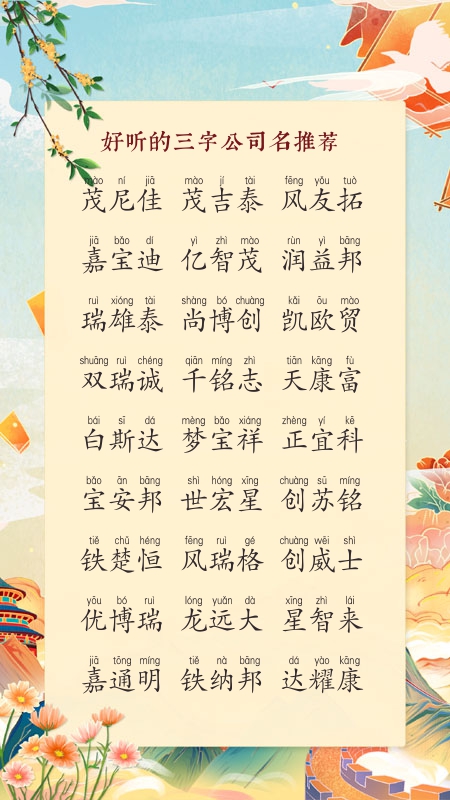 好听的三字公司名推荐
mào ní jiā mào jí tài fēng yǒu tuò
茂尼佳 茂吉泰 风友拓
jiā bǎo dí yì zhì mào rùn yì bāng
嘉宝迪 亿智茂 润益邦
ruì xióng tài shàng bó chuàng kǎi ōu mào
瑞雄泰 尚博创 凯欧贸
shuāng ruì chéng qiān míng zhì tiān kāng fù
双瑞诚 千铭志 天康富
bái sī dá mèng bǎo xiáng zhèng yí kē
白斯达 梦宝祥 正宜科
bǎo ān bāng shì hóng xīng chuàng sū míng
宝安邦 世宏星 创苏铭
tiě chǔ héng fēng ruì gé chuàng wēi shì
铁楚恒 风瑞格 创威士
yōu bó ruì lóng yuǎn dà xīng zhì lái
优博瑞 龙远大 星智来
jiā tōng míng tiě nà bāng dá yào kāng
嘉通明 铁纳邦 达耀康